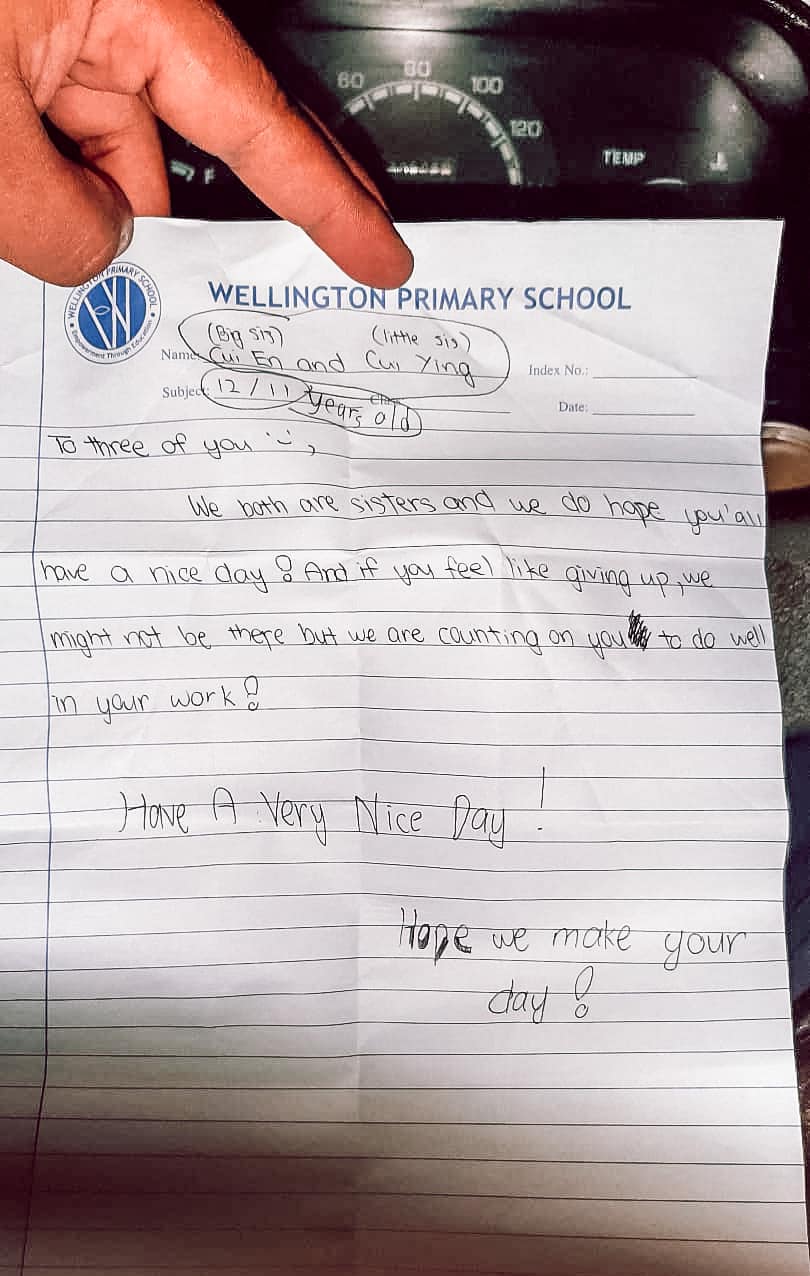 60 80 100 120
TEMP
F
WELLINGTON PRIMARY SCHOOL
Empowerment Through Education
WELLINGTON PRIMARY SCHOOL
(Big sis) (little sis)
Name: Cui En and Cui Ying
Index No.:
Subject: 12 / 11 years old
Class:
Date:
To three of you :-),
We both are sisters and we do hope you'all
have a nice day! And if you feel like giving up, we
might not be there but we are counting on you to do well
in your work!
Have A Very Nice Day!
Hope we make your
day!